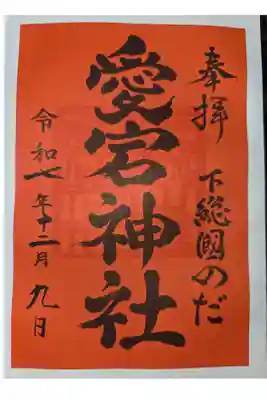 奉拝
下総國のだ
愛宕神社
令和七年十二月九日